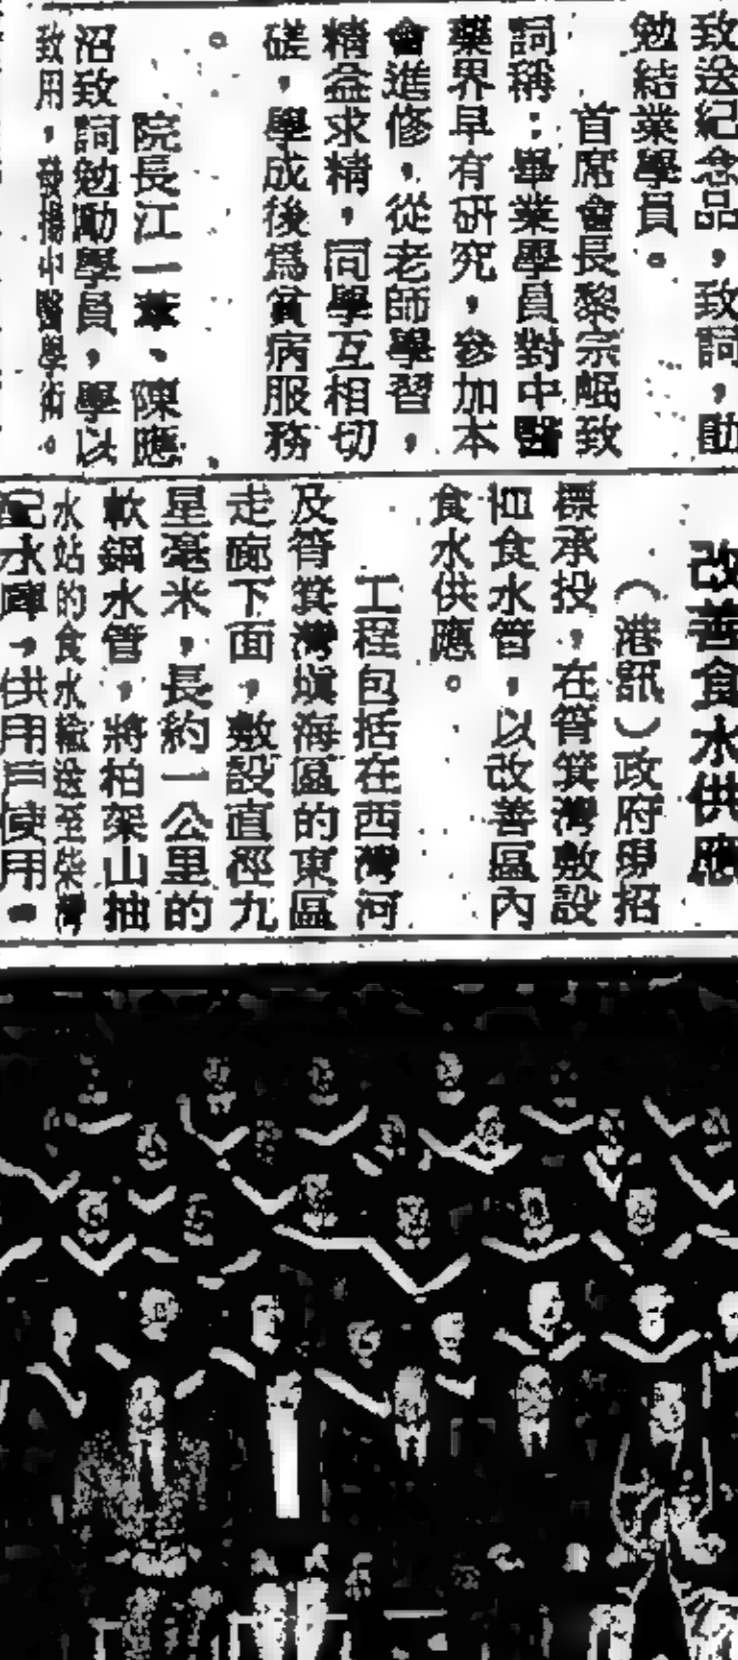 致送紀念品，致詞，勖
勉結業學員。
首席會長黎宗岷致
詞稱：畢業學員對中醫
藥界早有研究，參加本
會進修，從老師學習，
精益求精，同學互相切
磋，學成後爲貧病服務
。
院長江一葦、陳應
沼致詞勉勵學員，學以
致用，發揚中醫學術。
改善食水供應
（港訊）政府現招
標承投，在筲箕灣敷設
食水管，以改善區內
食水供應。
工程包括在西灣河
及筲箕灣塡海區的東區
走廊下面，敷設直徑九
星毫米，長約一公里的
軟鋼水管，將柏架山抽
水站的食水輸送至柴灣
配水庫，供用戶使用。